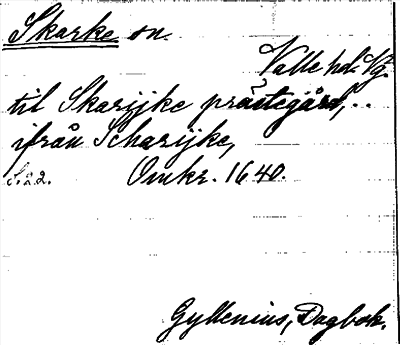 Skarke sn.
Valle hd. Vg.
til Skarijke prästegård, ..
ifrån Scharijke,
S. 22. Omkr. 1640.
Gyllenius, Dagbok.